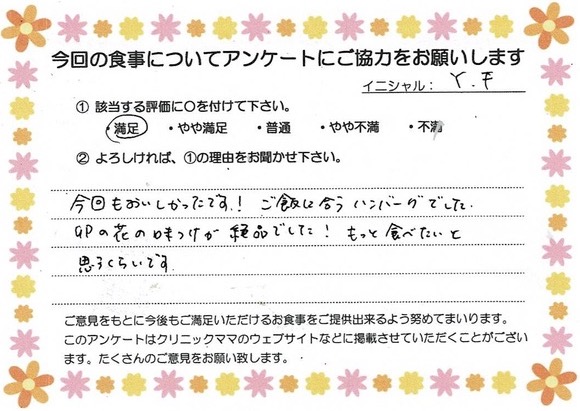 今回の食事についてアンケートにご協力をお願いします
イニシャル: Y.F
① 該当する評価に○を付けて下さい。
・満足 ・やや満足 ・普通 ・やや不満 ・不満
② よろしければ、①の理由をお聞かせ下さい。
今回もおいしかったです! ご飯に合うハンバーグでした。
の花の味つけが絶品でした! もっと食べたいと
思うくらいです。
ご意見をもとに今後もご満足いただけるお食事をご提供出来るよう努めてまいります。
このアンケートはクリニックママのウェブサイトなどに掲載させていただくことがござい
ます。たくさんのご意見をお願い致します。